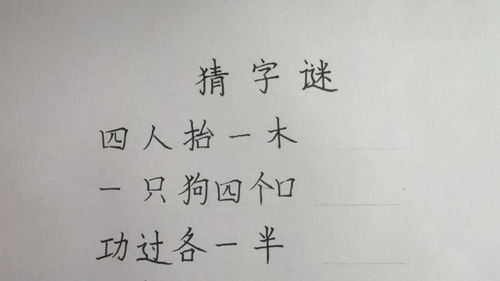 猜字谜
四人抬一木
一只狗四个口
功过各一半